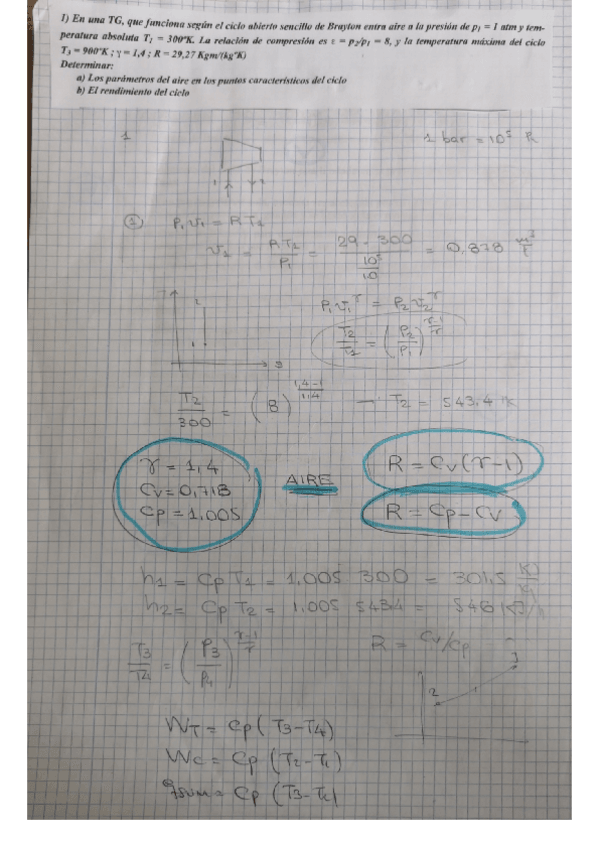 1) En una TG, que funciona según el ciclo abierto sencillo de Brayton entra aire a la presión de p₁ = 1 atm y tem-
peratura absoluta T₁ = 300°K. La relación de compresión es ε = p₂/p₁ = 8, y la temperatura máxima del ciclo
T₃ = 900°K ; γ = 1,4 ; R = 29,27 Kgm/(kg°K)
Determinar:
a) Los parámetros del aire en los puntos característicos del ciclo
b) El rendimiento del ciclo
1
1 bar = 10⁵ P
① P₁ V₁ = R T₁
v₁ = R T₁ / P₁ = 29 . 300 / (10⁵ / 10) = 0,878
P₁ v₁^γ = P₂ v₂^γ
T₂/T₁ = (P₂/P₁)^(γ-1/γ)
T₂/300 = (8)^(1,4-1/1,4) → T₂ = 543,4 K
γ = 1,4
Cv = 0,718
Cp = 1,005
AIRE
R = Cv(γ-1)
R = Cp - Cv
h₁ = Cp T₁ = 1,005 300 = 301,5
h₂ = Cp T₂ = 1,005 543,4 = 546
T₃/T₄ = (P₃/P₄)^(γ-1/γ)
R = Cv/Cp
2
3
W_T = Cp (T₃ - T₄)
W_C = Cp (T₂ - T₁)